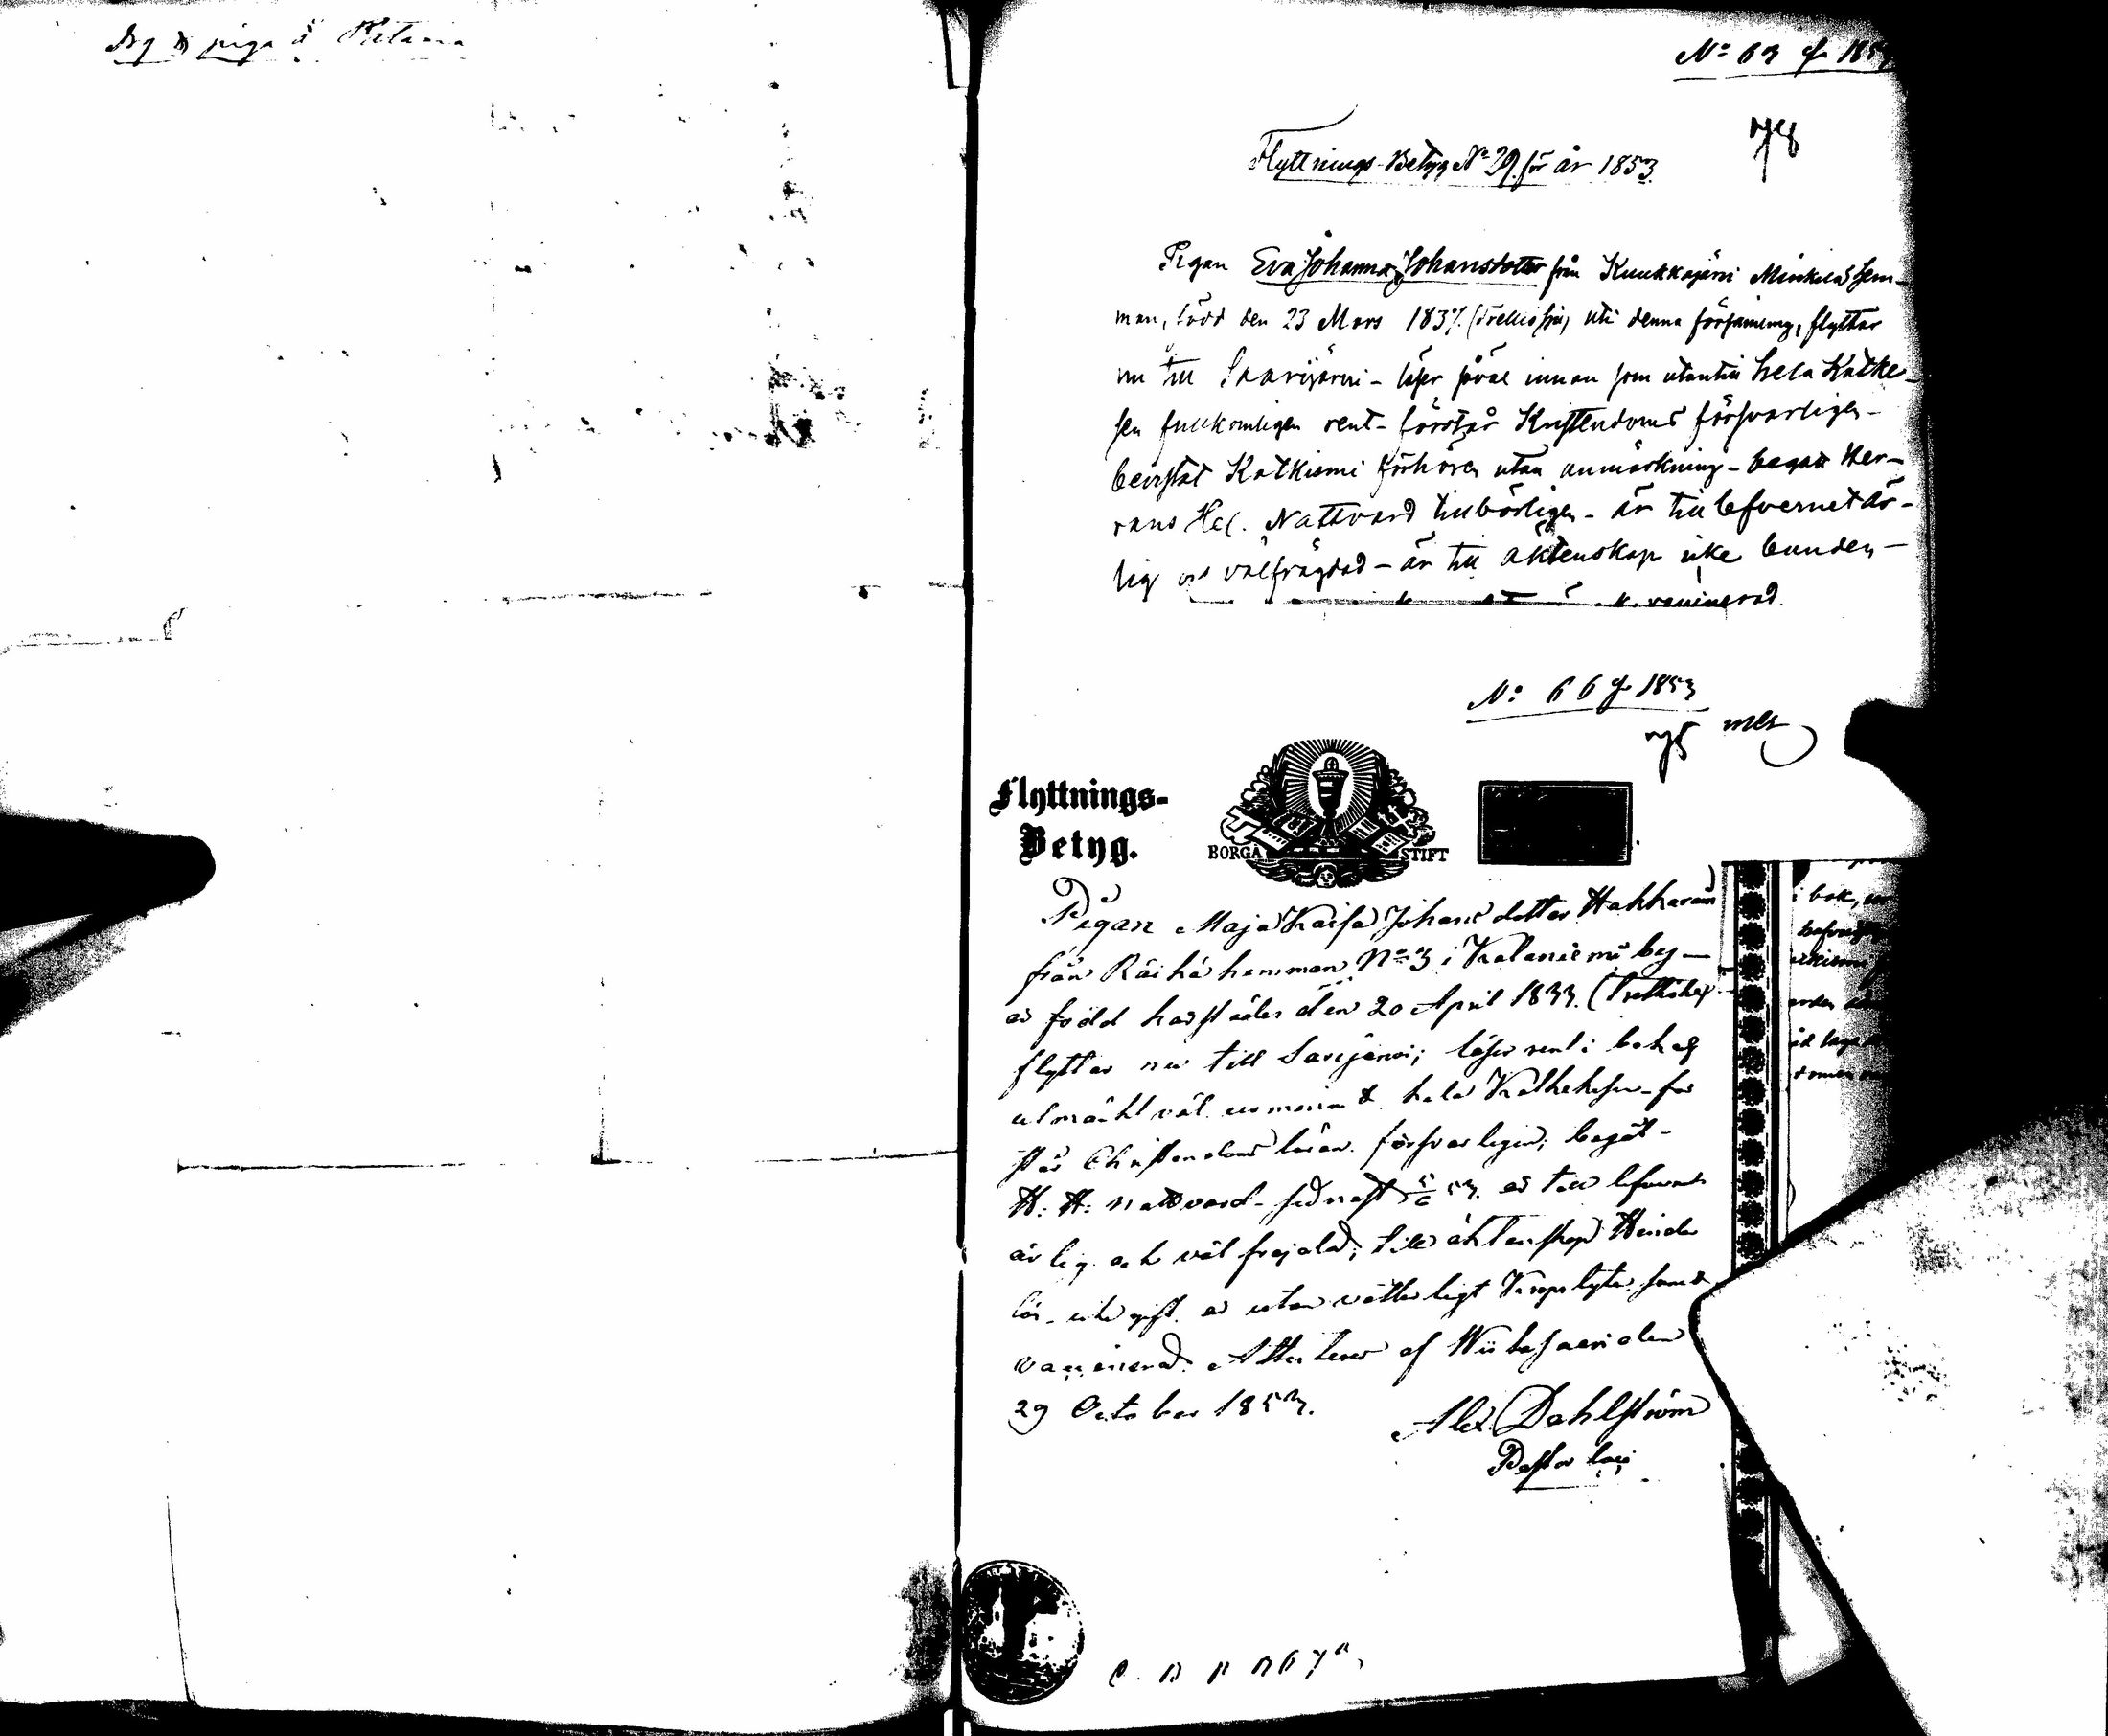 piga å
No 63 för 1853
78
Flyttnings-Betyg No 29. för år 1853.
Pigan Eva Johanna Johansdotter från Kuukkajärvi Minkilas Hem-
man, född den 23 Mars 1837. (trettio sju) uti denna församling, flyttar
nu till Saarijärvi - läser såväl innan som utantill hela Katke-
sen fullkomligen rent - förstår Kristendoms försvarligen -
bevistat Katkismi förhören utan anmärkning - begått Her-
rans Hel. Nattvard tillbörligen - är till lefvernet är-
lig och välfrägdad - är till äktenskap icke bunden -
vaccinerad.
No 66 för 1853
78
Flyttnings-
Betyg.
BORGÅ STIFT
Pigan Maja Kaisa Johans dotter Hakkarain
från Räihä hemman No 3 i Kalaniemi by -
är född härstädes den 20 April 1833. (Trettiotre)
flyttar nu till Sarijärvi; läser rent i bok och
utmärkt väl hela Kathekesen - för
står Christendoms läran försvarligen; begåt -
H: H: nattvard - sednast 5/6 53. är till lefvernet
ärlig och väl frejdad; till äktenskap Hinder
lös - icke gift. är utan vitterligt Kropslyte samt
vaccinerad. Attesterar af Wiitasaari den
29 October 1853.
Alex. Dahlström
Pastor loci
i bok,